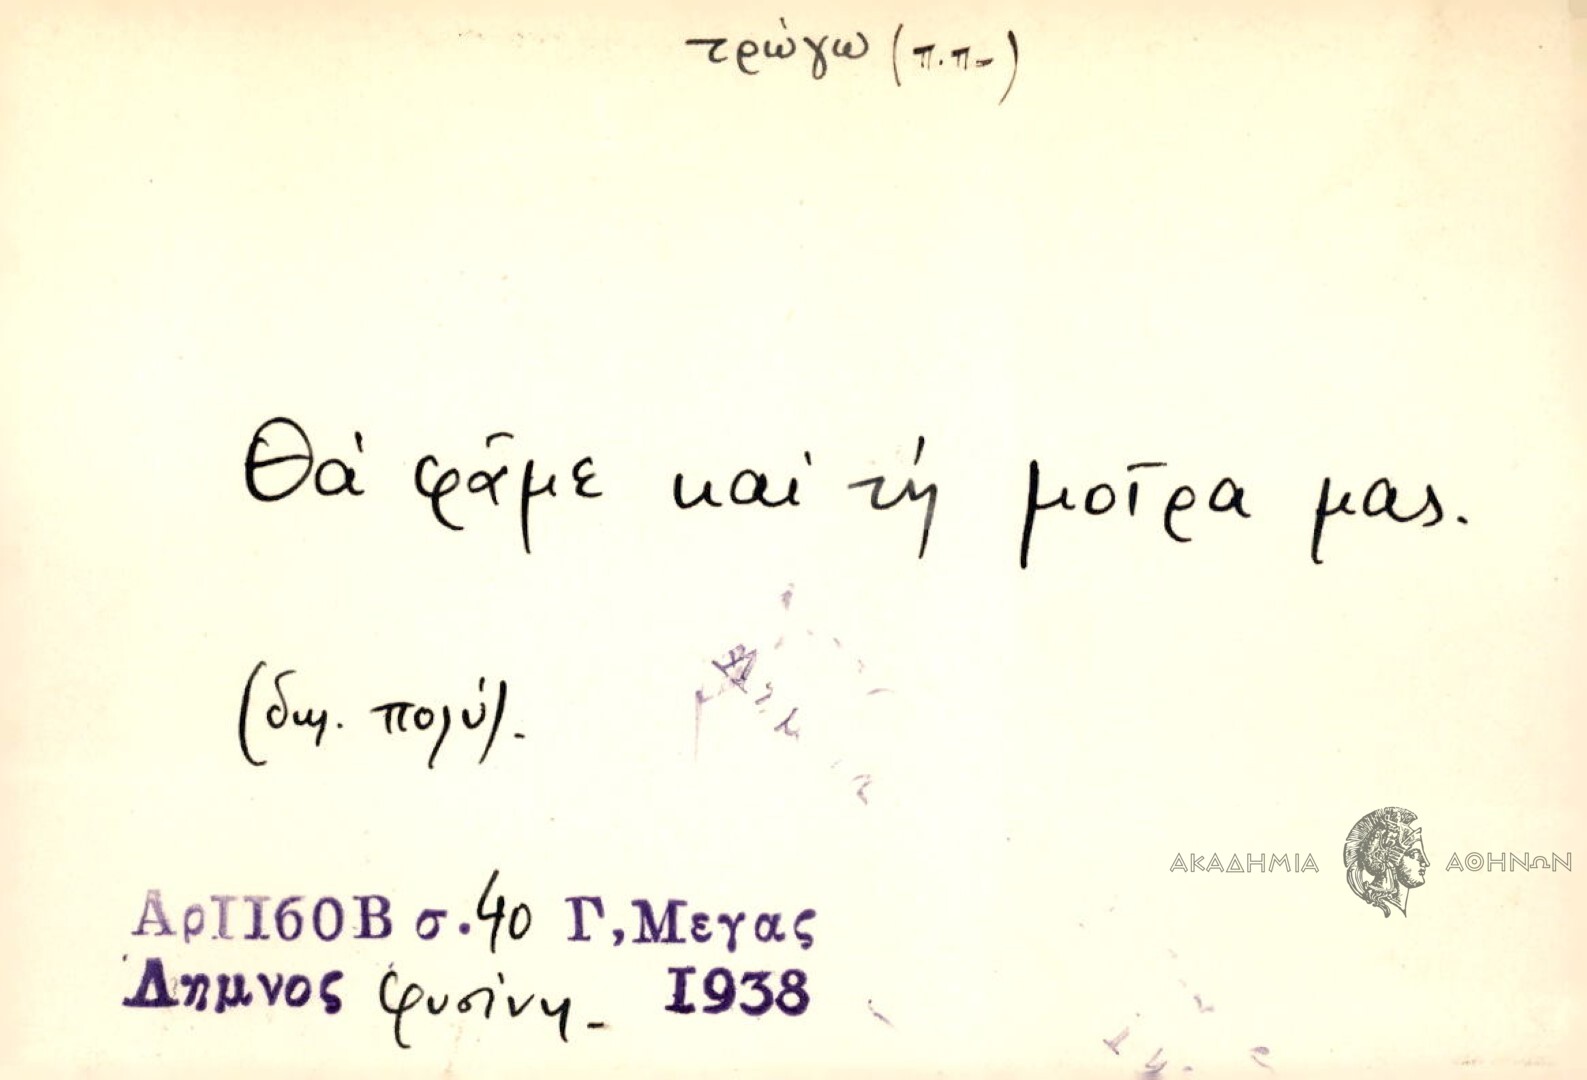 τρώγω (π.π-)
Θά φᾶμε καί τή μοῖρα μας.
(δηλ. πολύ).
ΑρΙΙ60Β σ.40 Γ,Μεγας
Λημνος φυσίνη- Ι938
ΑΚΑΔΗΜΙΑ ΑΘΗΝΩΝ